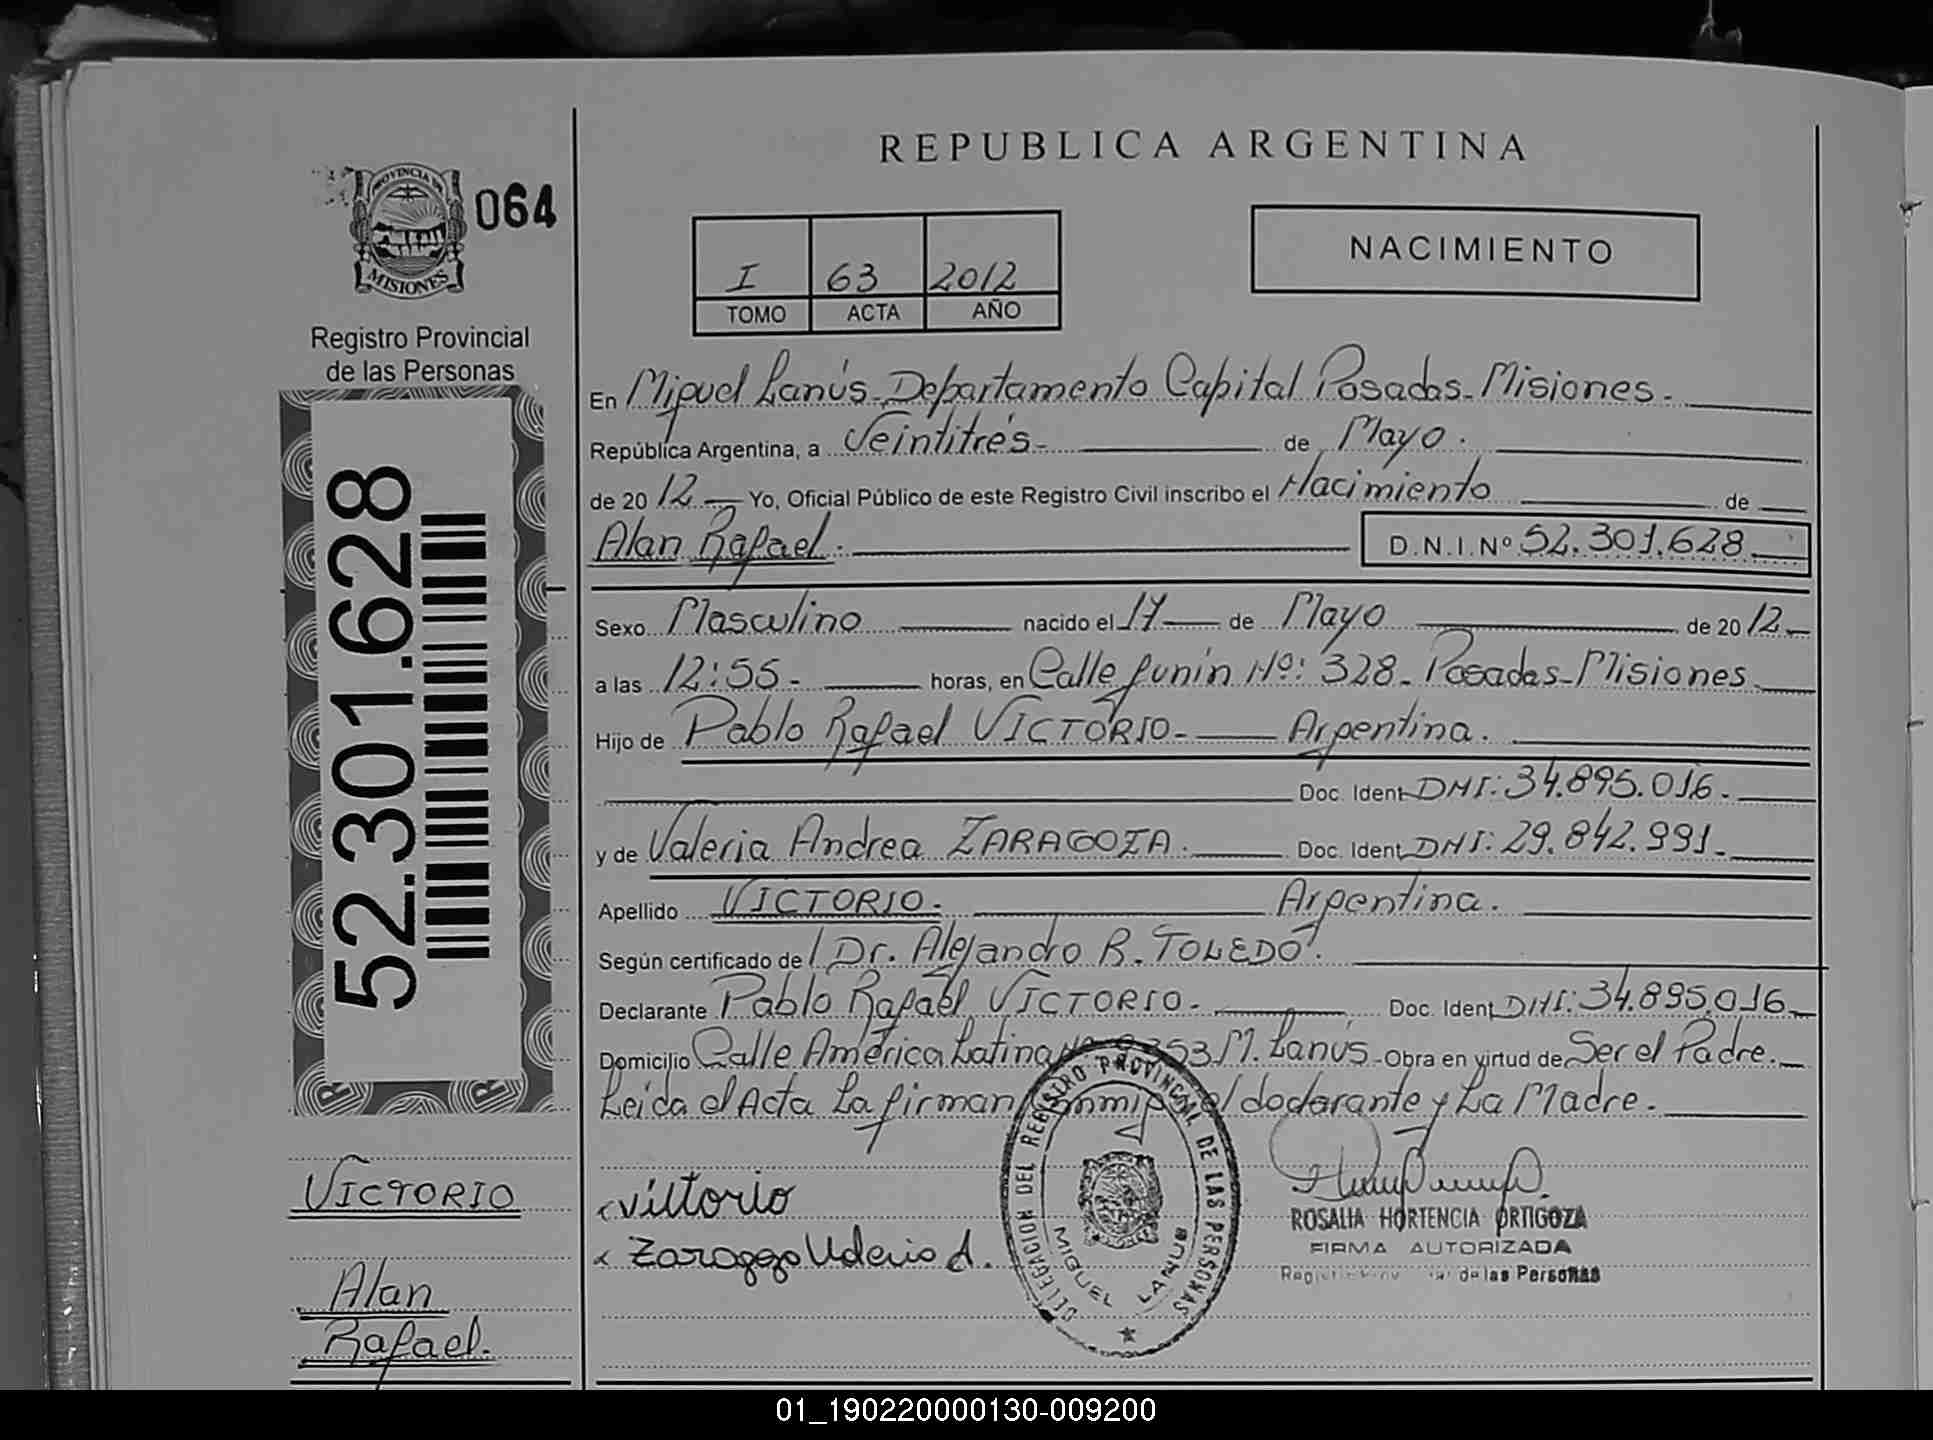 REPUBLICA ARGENTINA
PROVINCIA DE
MISIONES
064
Registro Provincial
de las Personas
I 63 2012
TOMO ACTA AÑO
NACIMIENTO
52.301.628
En Miguel Lanús. Departamento Capital Posadas. Misiones.
República Argentina, a Veintitrés. de Mayo.
de 20 12 Yo, Oficial Público de este Registro Civil inscribo el Nacimiento de
Alan Rafael. D.N.I. Nº 52.301.628
Sexo Masculino nacido el 17 de Mayo de 20 12
a las 12:55. horas, en Calle Junín Nº: 328. Posadas-Misiones
Hijo de Pablo Rafael VICTORIO. Argentina.
Doc. Ident DNI: 34.895.016.
y de Valeria Andrea ZARAGOZA. Doc. Ident DNI: 29.842.991.
Apellido VICTORIO. Argentina.
Según certificado de Dr. Alejandro R. TOLEDO.
Declarante Pablo Rafael VICTORIO. Doc. Ident DNI: 34.895.016
Domicilio Calle América Latina 353 M. Lanús. Obra en virtud de Ser el Padre.
Leída el Acta La firman el declarante y La Madre.
VICTORIO
Alan
Rafael.
Victorio
Zaragoza Valeria A.
DELEGACION DEL REGISTRO PROVINCIAL DE LAS PERSONAS
MIGUEL LANUS
ROSALIA HORTENCIA ORTIGOZA
FIRMA AUTORIZADA
de las Personas
01_190220000130-009200